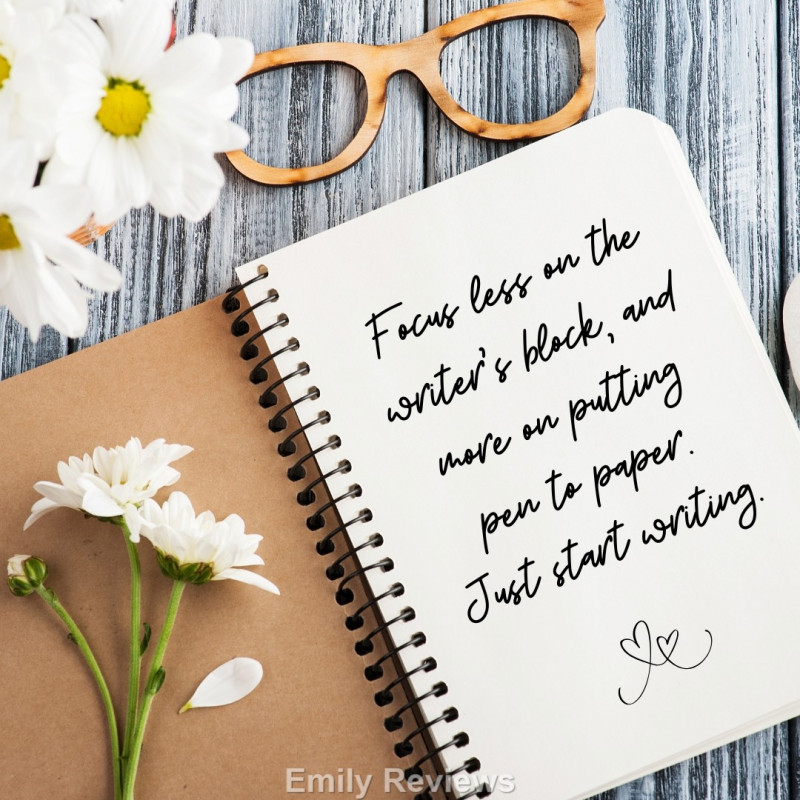 Focus less on the
writer's block, and
more on putting
pen to paper.
Just start writing.
Emily Reviews